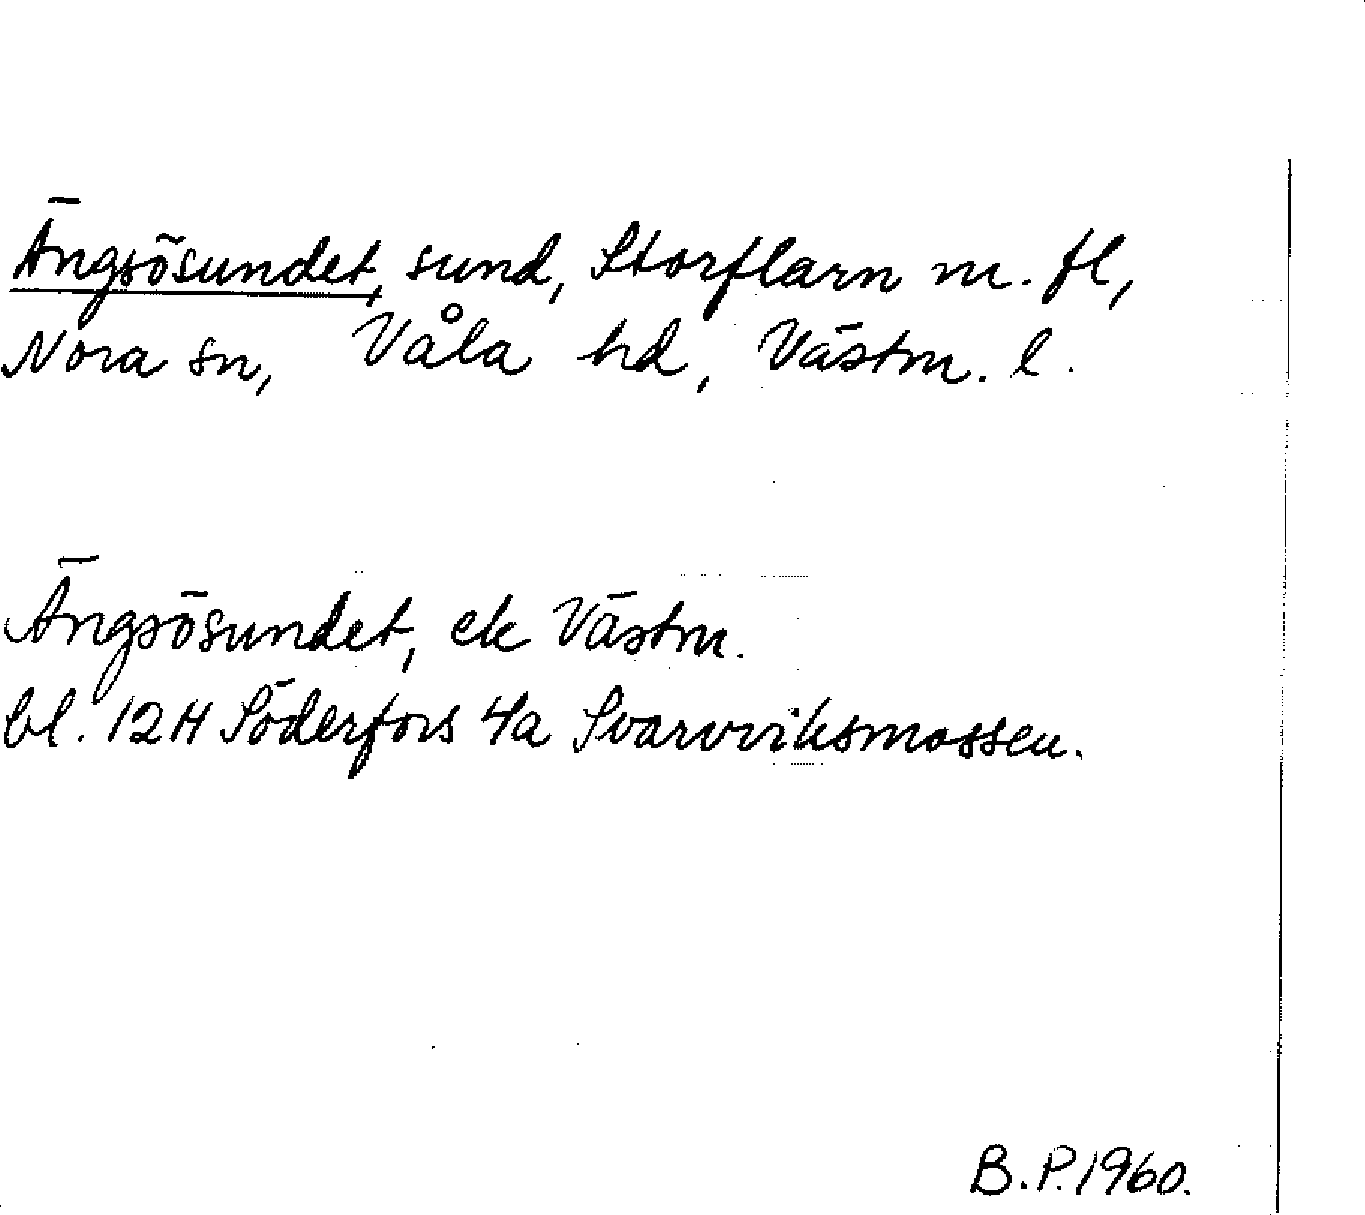 Ängsösundet, sund, Storflarn m. fl,
Nora sn, Våla hd, Västm. l.
Ängsösundet, ek Västm.
bl. 12H Söderfors 4a Svarvviksmossen.
B.P.1960.